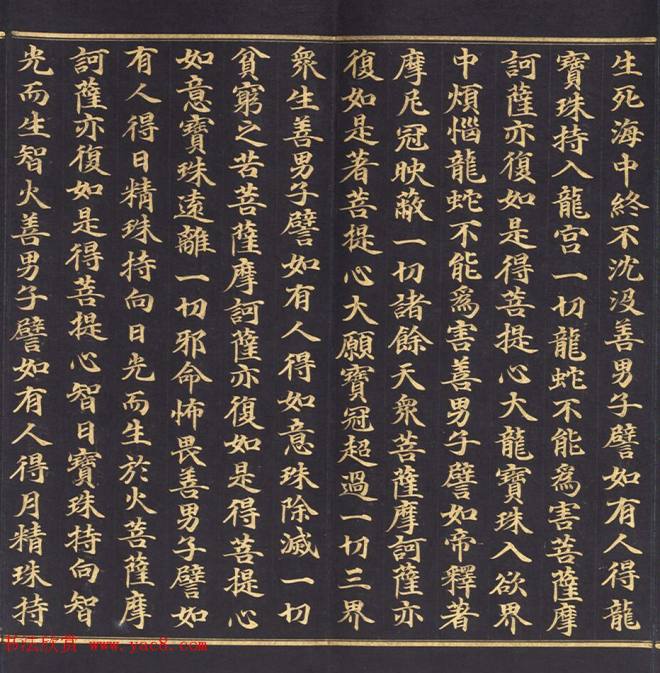 生死海中終不沈没善男子譬如有人得龍
寶珠持入龍宮一切龍蛇不能爲害菩薩摩
訶薩亦復如是得菩提心大龍寶珠入欲界
中煩惱龍蛇不能爲害善男子譬如帝釋著
摩尼冠映蔽一切諸餘天衆菩薩摩訶薩亦
復如是著菩提心大願寶冠超過一切三界
衆生善男子譬如有人得如意珠除滅一切
貧窮之苦菩薩摩訶薩亦復如是得菩提心
如意寶珠遠離一切邪命怖畏善男子譬如
有人得日精珠持向日光而生於火菩薩摩
訶薩亦復如是得菩提心智日寶珠持向智
光而生智火善男子譬如有人得月精珠持
书法欣赏 www.yac8.com